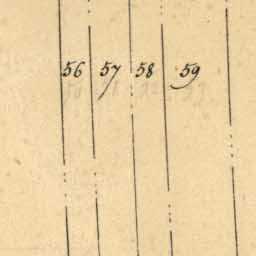 56 57 58 59